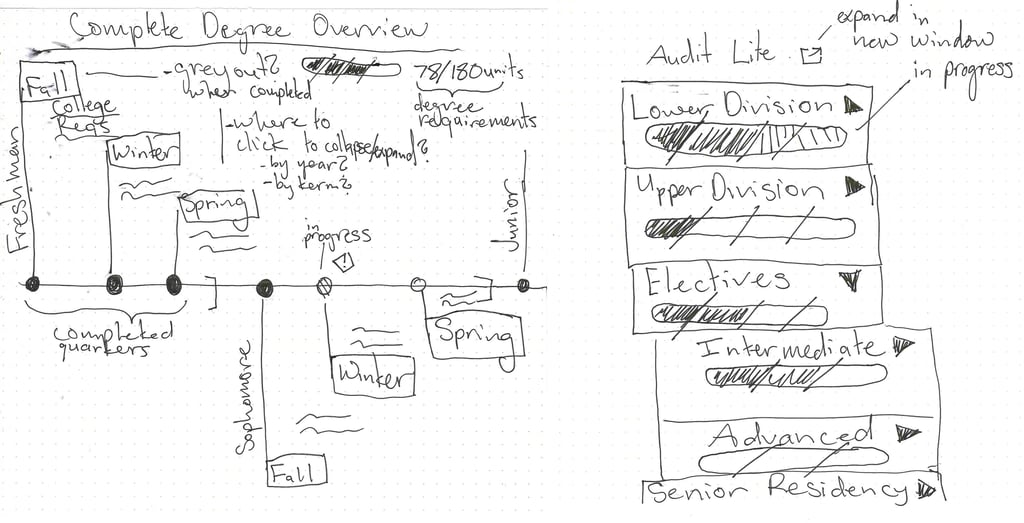 Complete Degree Overview
Fall
College
Reqs
Freshman
Winter
Spring
completed
quarters
-grey out?
when completed
78/180 units
degree
requirements
-where to
click to collapse/expand?
-by year?
-by term?
in
progress
!
Sophomore
Fall
Winter
Spring
Junior
Audit Lite
expand in
new window
in progress
Lower Division
Upper Division
Electives
Intermediate
Advanced
Senior Residency